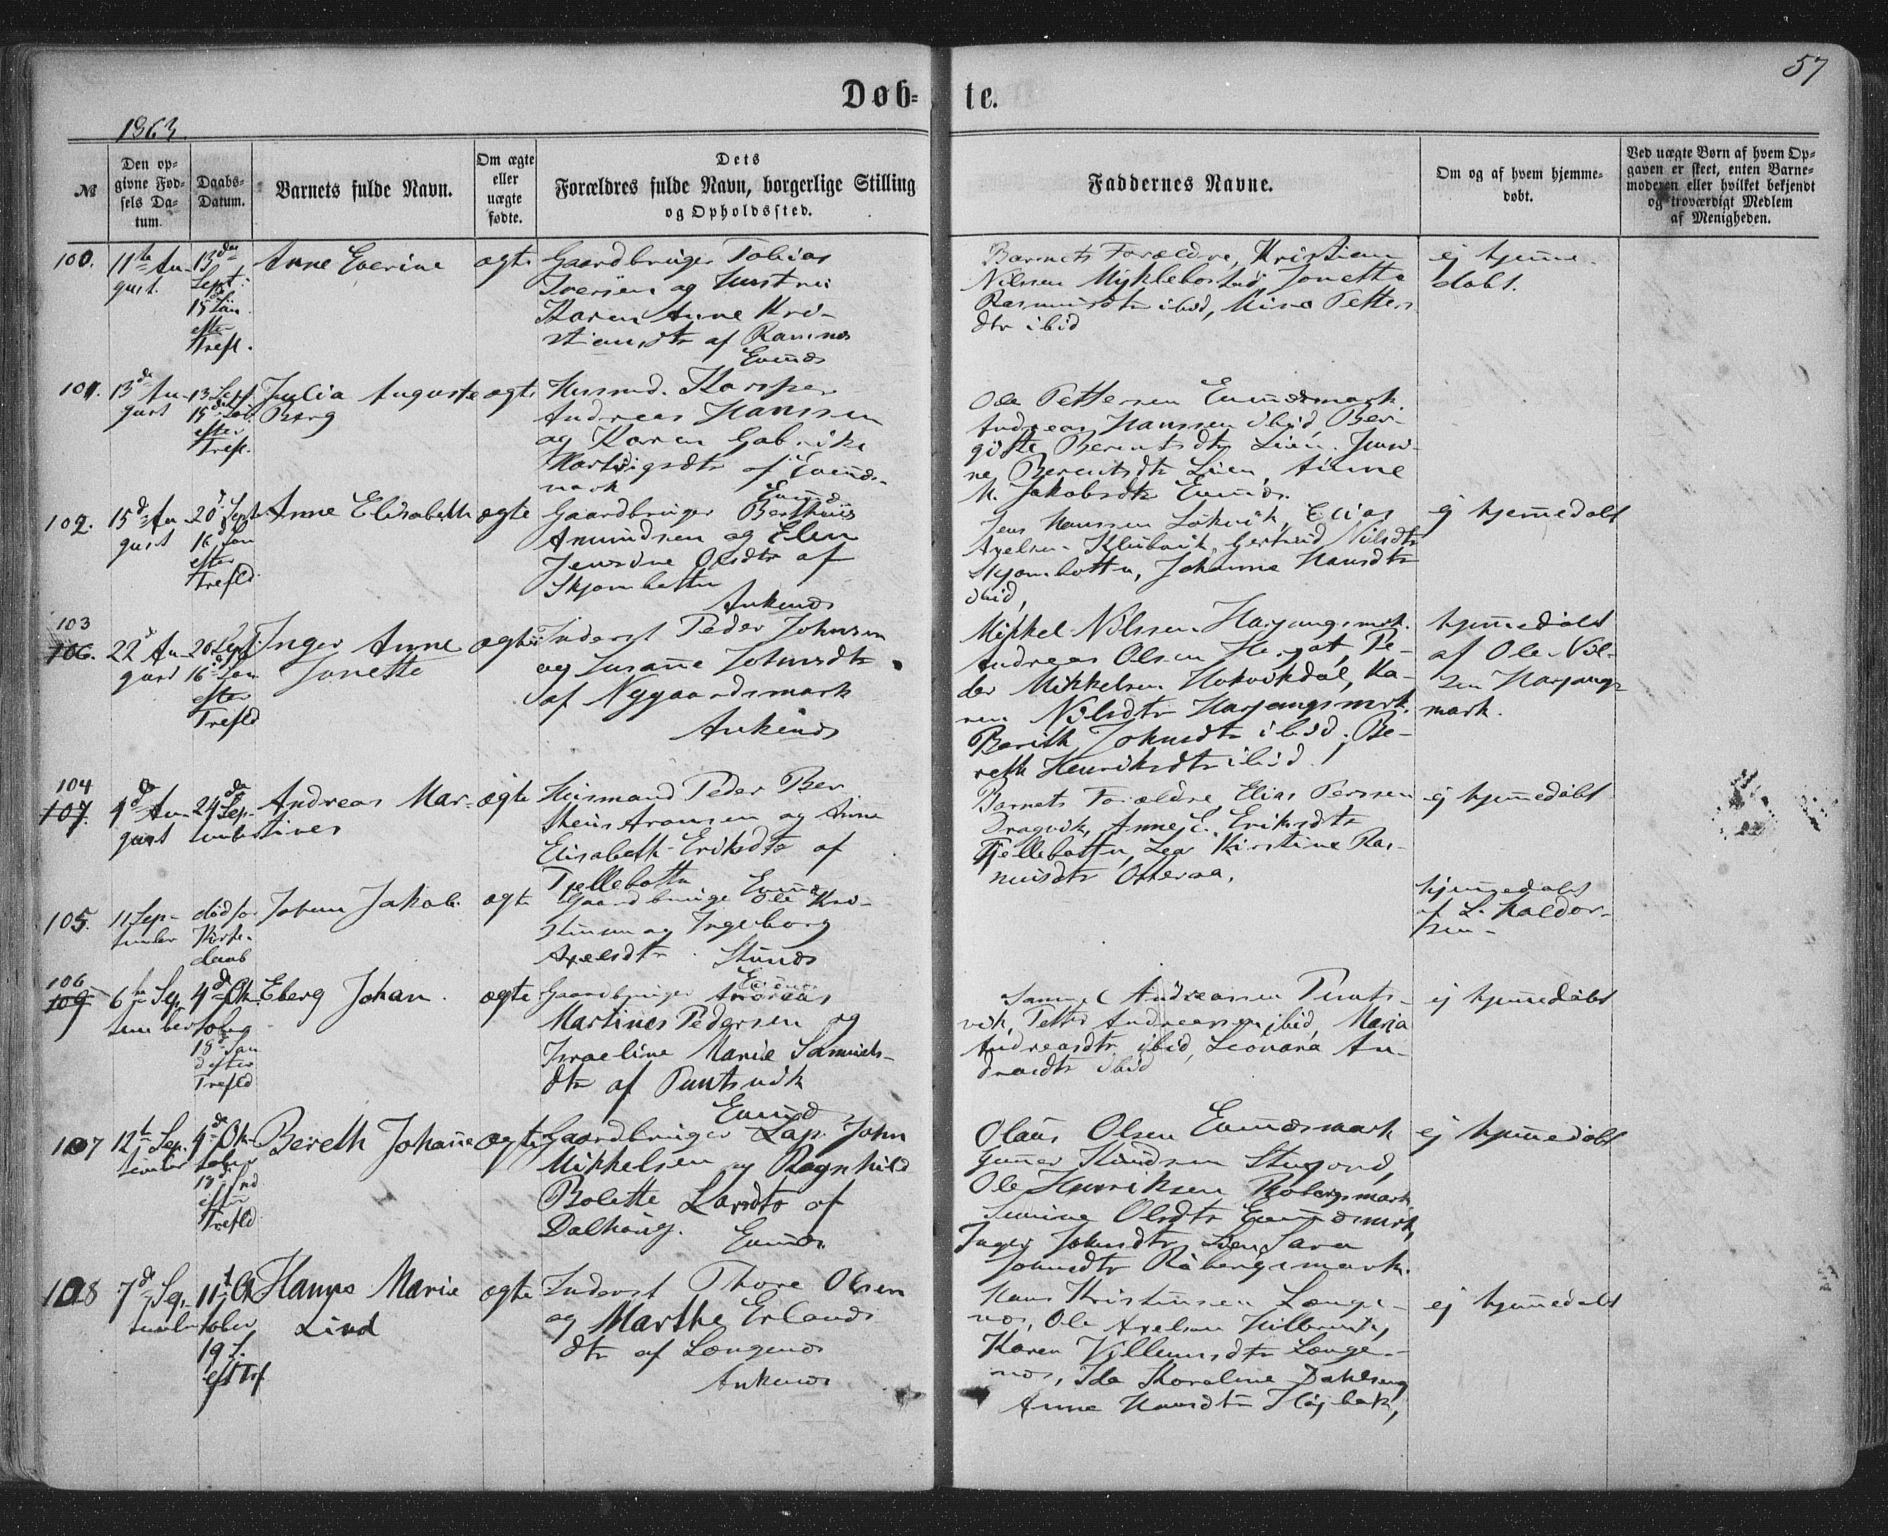 57
Døb-te.
1863.
№
Den op-
givne Fød-
sels Da-
tum.
Daabs-
Datum.
Barnets fulde Navn.
Om ægte
eller
uægte
fødte.
Dets
Forældres fulde Navn, borgerlige Stilling
og Opholdssted.
Faddernes Navne.
Om og af hvem hjemme-
døbt.
Ved uægte Børn af hvem Op-
gaven er skeet, enten Barne-
moderen eller hvilket bekjendt
og troværdigt Medlem
af Menigheden.
100.
11te Au-
gust.
13de
Sept:
15 Søn.
efter
Tref.
Anne Everine
ægte
Gaardbruger Tobias
Iversen og Hustru
Karen Anne Kri-
stiansdtr af Ramnes
Evenæs
Barnets Forældre, Kristian
Nilsen Myklebostad, Jonette
Rasmusdtr ibid, Mina Petters
dtr ibid
ej hjemme-
døbt.
101.
13de Au-
gust
13 Sept.
15de Søn.
efter
Tref.
Julia Auguste
Berg
ægte
Husmd. Kasper
Andreas Hanssen
og Karen Gabrike
Hartvigsdtr af Evenæs-
mark
Evenæs
Ole Pettersen Evenæsmark
Andreas Hanssen ibid, Ber-
gitte Berentsdtr Lien,
Berentsdtr Lien, Anne
M. Jakobsdtr Evenæs.
102.
15de Au-
gust
20d Septb.
16 Søn
efter
Trefld.
Anne Elisabeth
ægte
Gaardbruger Berthüs
Amundsen og Elen
Jensine Olsdtr af
Skjombotten
Ankenes
Jens Hanssen Elias
Axelsen Gertrud Nilsdtr
Skjombotten, Johanne Hansdtr
ibid,
ej hjemmedøbt
103
106.
22d Au-
gust
20 Sept.
16d Søn
efter
Trefld
Inger Anne
Jonette
ægte
Inderst Peder Johnsen
og Susanne Johnsdtr
af Nygaardsmark
Ankenes
Mikkel Nilssen Harjangsmrk.
Andreas Olsen Pe-
der Mikkelsen Ka-
ren Nilsdtr Harjangsmrk.
Bereth Johnsdtr ibid, Be-
reth Henriksdtr ibid.
hjemmedøbt
af Ole Nil-
sen Harjangs-
mark.
104
107.
4d Au-
gust
24de
Sep-
tember
Andreas Mar-
tines
ægte
Husmand Peder Ber
theüs Aronsen og Anne
Elisabeth Eriksdtr af
Tjellebotten
Evenæs
Barnets Forældre Elias Perssen
Dragvik, Anne E. Eriksdtr
Tjellebotten, Lea Kirstine Ras-
musdtr Osteraa,
ej hjemmedøbt
105.
11 Sep-
tember
død før
Kirke-
daab
Johan Jakob.
ægte
Gaardbruger Ole Kri-
stensen og Ingeborg
Axelsdtr
hjemmedøbt
af L. Haldor-
sen
106
109
6te Sep
tember
4d Ok-
tober
18d Søn
d efter
Trefld
Eberg Johan
ægte
Gaardbruger Andreas
Martines Pedersen og
Israeline Marie Samuels-
dtr af Tuntsvik
Evenæs
Samuel Andreassen Tunts-
vik, Petter Andreassen ibid, Maria
Andreasdtr ibid, Leonara An-
dreasdtr ibid
ej hjemmedøbt
107
12te Sep.
tember
4d Ok-
tober
18d Snd
efter
Trefld
Bereth Johanne
ægte
Gaardbruger Lap. John
Mikkelsen og Ragnhild
Bolette Larsdtr af
Dalhaug.
Evenæs
Olaüs Olsen Evenæsmark
Gunner Knudsen
Ole Henriksen Robergsmark
Olsdtr Evenæsmrk,
Inger Johnsdtr Lien, Sara
Johnsdtr Råbergsmark.
ej hjemmedøbt
108
7d Sep-
tember
11te Ok
tober
19 S.
eft Trf
Hanna Marie
Lind
ægte
Inderst Thore Olsen
og Marthe Erlands
dtr af Længenes
Ankenes
Hans Kristensen Længe-
nes, Ole Axelsen
Karen Villumsdtr Længe-
nes, Ida Karoline Dahlberg
Anne Hansdtr Højbak,
ej hjemmedøbt